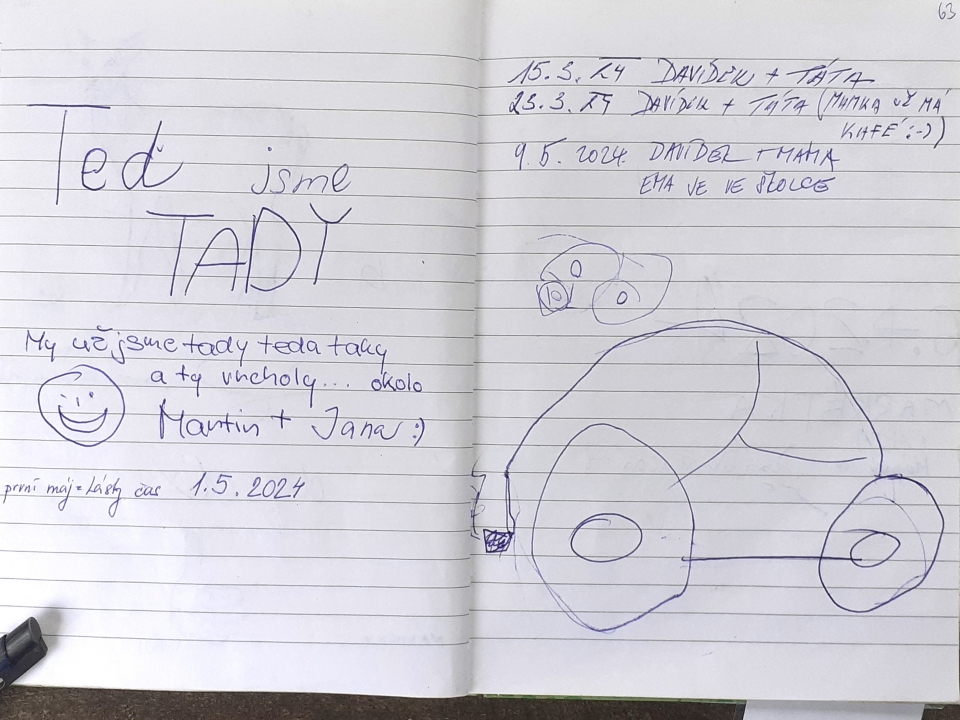 Teď jsme
TADY
My už jsme tady teda taky
a ty vrcholy... okolo
Martin + Jana :)
první máj = lásky čas 1.5.2024
63
15.3.24 DAVÍDEK + TÁTA
23.3.24 DAVÍDEK + TÁTA (MAMKA UŽ MÁ
KAFÉ :-))
9.5.2024 DAVÍDEK + MÁMA
EMA JE VE ŠKOLCE